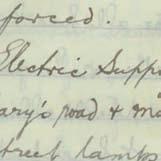 forced.
Electric Supp
ary's road & ma
treet lamp